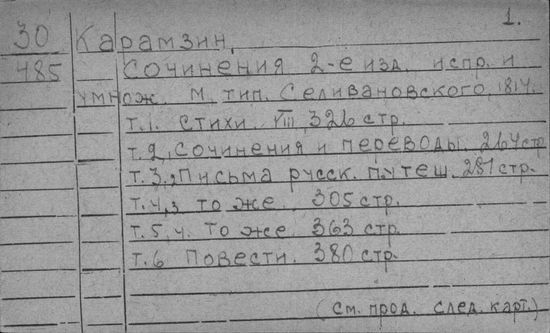 1.
30 Карамзин,
485 Сочинения 2-е изд. испр. и
умнож. М. тип. Селивановского, 1814.
т.1. Стихи. VIII, 326 стр.
т.2, Сочинения и переводы. 264 стр
т.3.2 Письма русск. путеш. 281 стр.
т.4,3 то же. 305 стр.
т.5,4. то же. 363 стр.
т.6 Повести. 380 стр.
(см. прод. след. карт.)